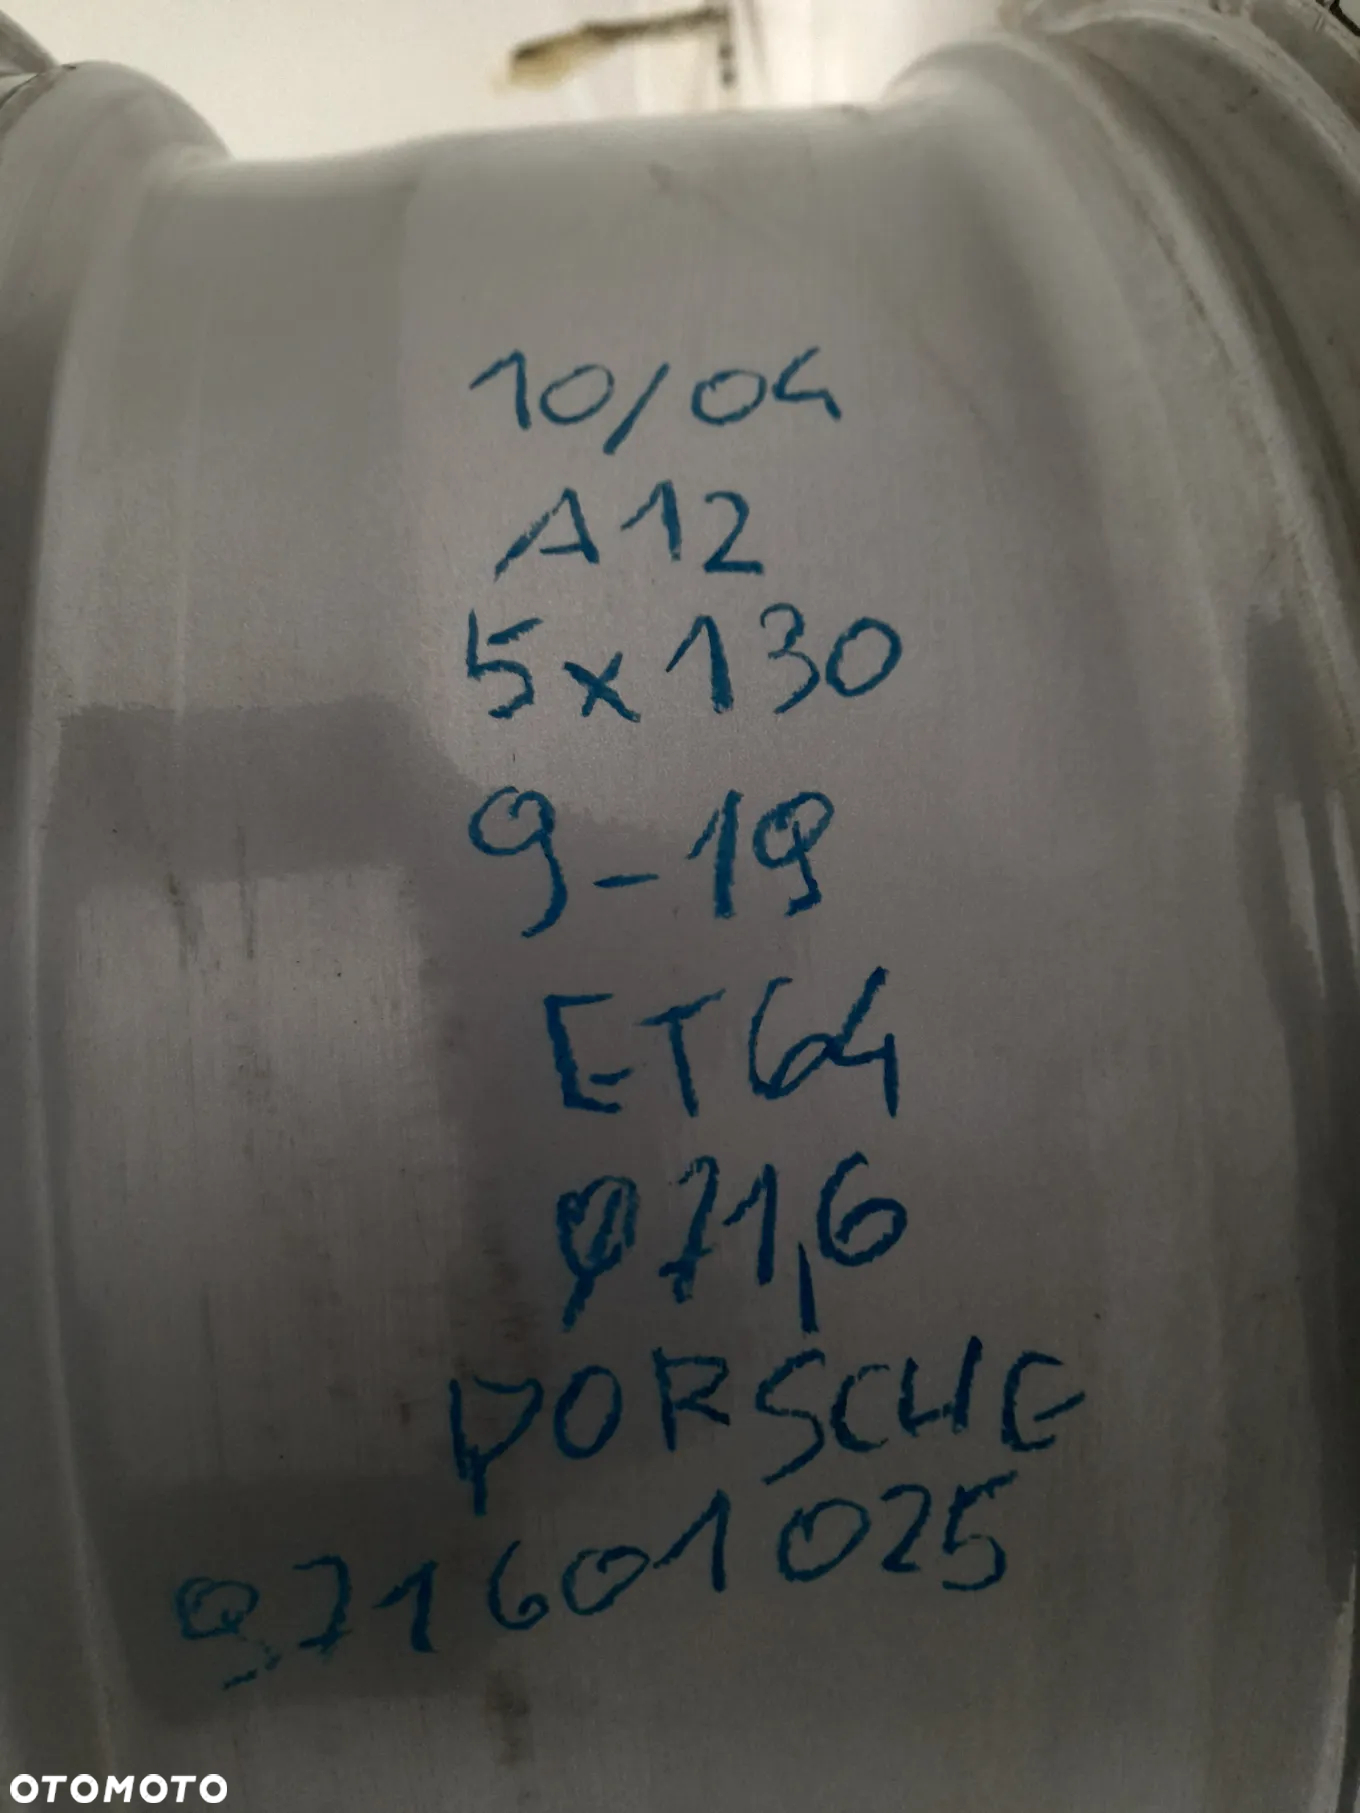 10/04
A12
5x130
9-19
ET64
Ø71,6
PORSCHE
971601025
OTOMOTO